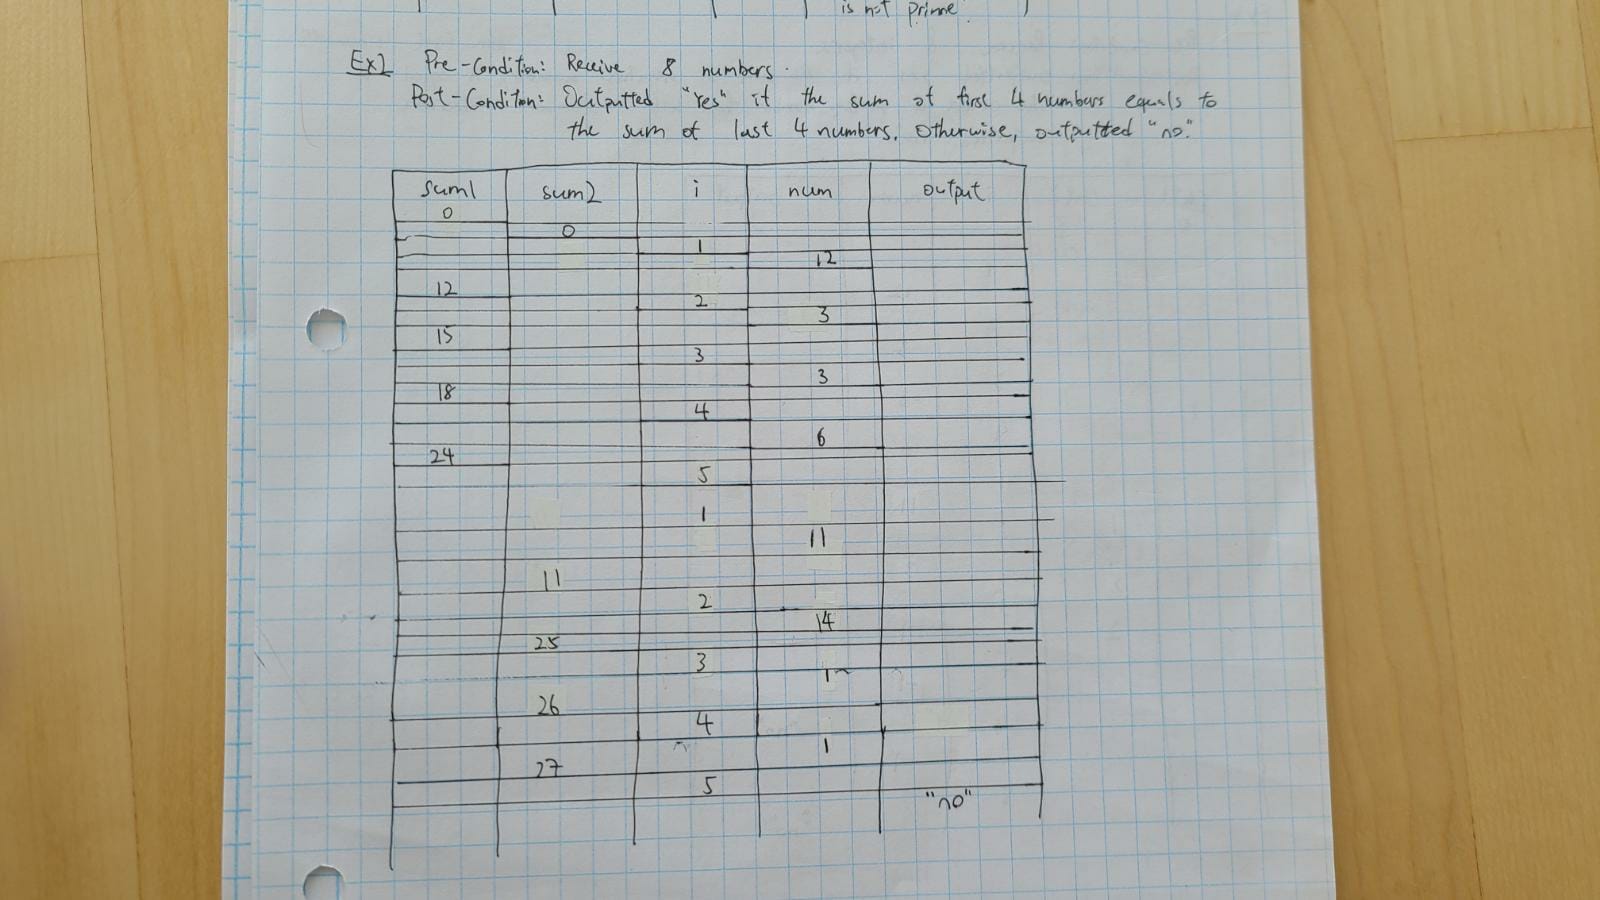 is not prime
Ex2 Pre-Condition: Receive 8 numbers.
Post-Condition: Outputted "Yes" if the sum of first 4 numbers equals to
the sum of last 4 numbers. Otherwise, outputted "no".
sum1 sum2 i num output
0
0
1
12
12
2
3
15
3
3
18
4
6
24
5
1
11
11
2
14
25
3
1
26
4
1
27
5
"no"